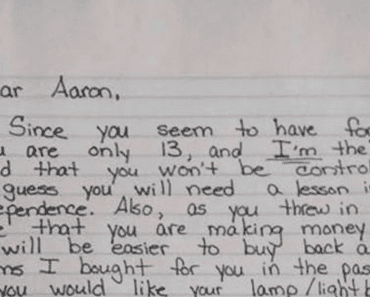 ar Aaron,
Since you seem to have fo
u are only 13, and I'm the
d that you won't be control
guess you will need a lesson i
ependence. Also, as you threw in
that you are making money
will be easier to buy back a
ms I bought for you in the pas
you would like your lamp/light b